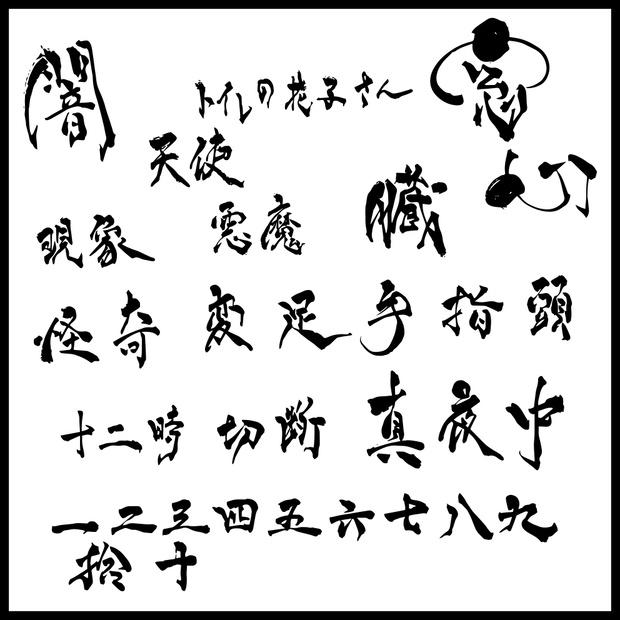 闇 トイレの花子さん 窓
天使 切
現象 悪魔 臓
怪奇 変 足 手 指 頭
十二時 切断 真夜中
一二三四五六七八九
拾 十